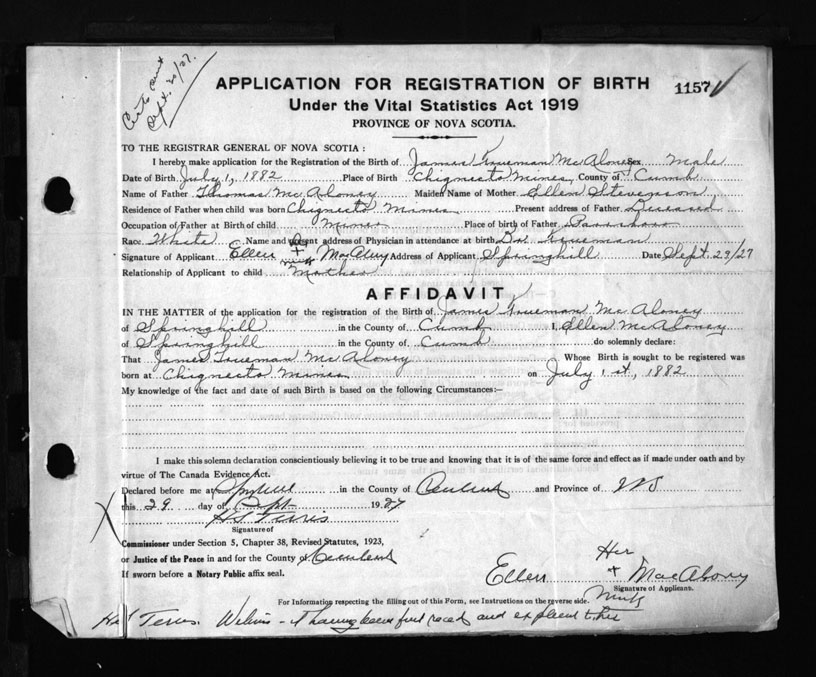 Sept. 20/27.
APPLICATION FOR REGISTRATION OF BIRTH
1157
Under the Vital Statistics Act 1919
PROVINCE OF NOVA SCOTIA.
TO THE REGISTRAR GENERAL OF NOVA SCOTIA :
I hereby make application for the Registration of the Birth of James Trueman McAloney Sex Male
Date of Birth July 1, 1882 Place of Birth Chignecto Mines County of Cumb
Name of Father Thomas McAloney Maiden Name of Mother Ellen Stevenson
Residence of Father when child was born Chignecto Mines Present address of Father Deceased
Occupation of Father at Birth of child Miner Place of birth of Father Parrsboro
Race White Name and present address of Physician in attendance at birth Dr. Trueman
Signature of Applicant Ellen + MacAlony Address of Applicant Springhill Date Sept. 29/27
Relationship of Applicant to child Mother
AFFIDAVIT
IN THE MATTER of the application for the registration of the Birth of James Trueman McAloney
of Springhill in the County of Cumb I, Ellen McAloney
of Springhill in the County of Cumb do solemnly declare:
That James Trueman McAloney Whose Birth is sought to be registered was
born at Chignecto Mines on July 1st, 1882
My knowledge of the fact and date of such Birth is based on the following Circumstances:—
I make this solemn declaration conscientiously believing it to be true and knowing that it is of the same force and effect as if made under oath and by
virtue of The Canada Evidence Act.
Declared before me at Springhill in the County of Cumberland and Province of NS
this 29 day of Sept 1927
Signature of
Commissioner under Section 5, Chapter 38, Revised Statutes, 1923,
or Justice of the Peace in and for the County of Cumberland
If sworn before a Notary Public affix seal.
Her
Ellen + MacAlony
Signature of Applicant.
Mark
For Information respecting the filling out of this Form, see Instructions on the reverse side.
it having been first read and explained to her